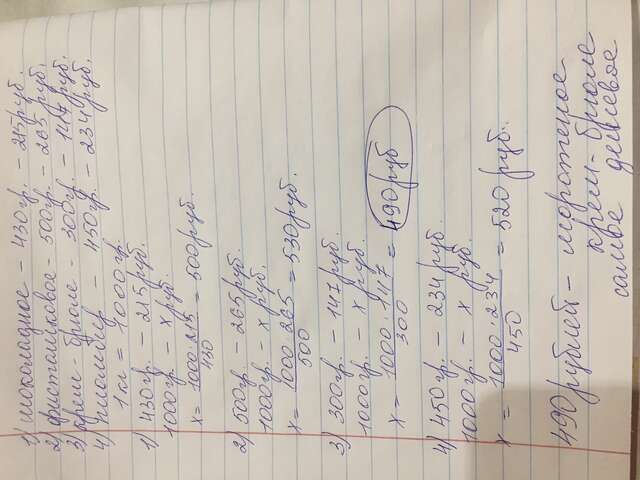 1) шоколадное - 430гр. - 215руб.
2) фисташковое - 500гр. - 265 руб.
3) крем-брюле - 300гр. - 147руб.
4) пломбир - 450гр. - 234 руб.
1 кг = 1000гр.
1) 430гр. - 215руб.
1000гр. - х руб.
х = 1000·215 / 430 = 500руб.
2) 500гр. - 265руб.
1000гр. - х руб.
х = 1000·265 / 500 = 530руб.
3) 300гр. - 147руб.
1000гр. - х руб.
х = 1000·147 / 300 = 490руб
4) 450гр. - 234руб.
1000гр. - х руб.
х = 1000·234 / 450 = 520руб.
490рублей - мороженое
крем-брюле
самое дешевое